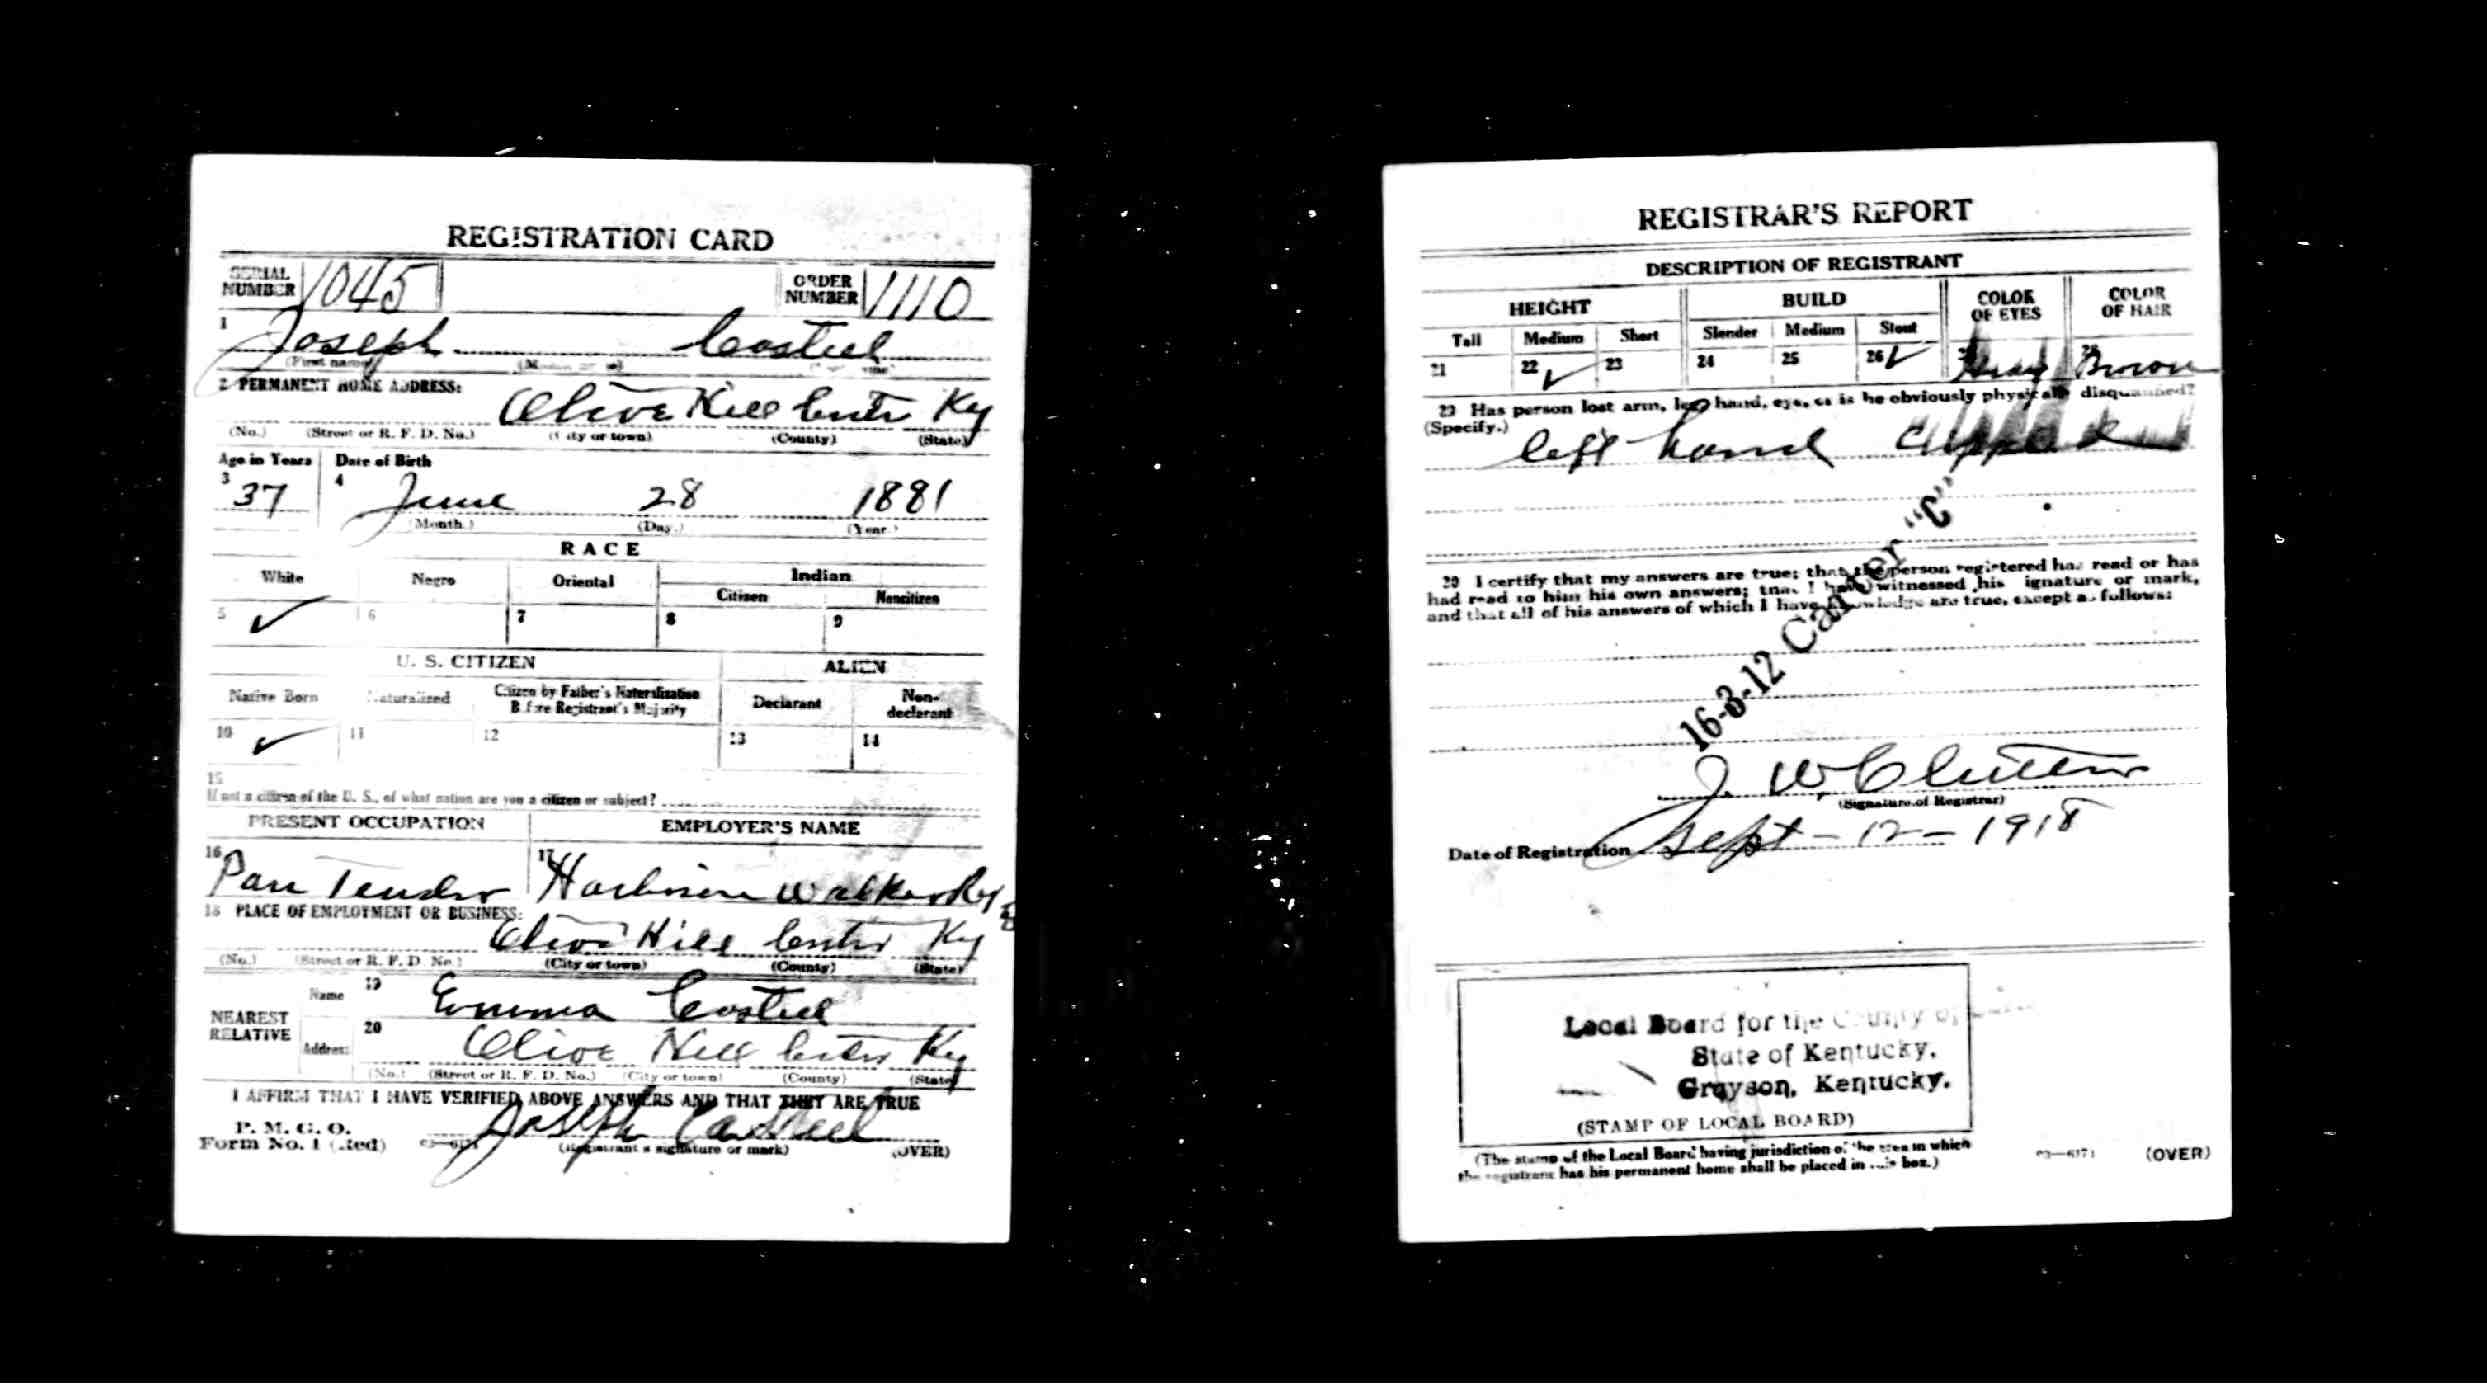 REGISTRATION CARD
SERIAL NUMBER 1045 ORDER NUMBER 1110
1 Joseph Costeel
(First name)
2 PERMANENT HOME ADDRESS:
Olive Hill Carter Ky
(No.) (Street or R. F. D. No.) (City or town) (County) (State)
Age in Years Date of Birth
3 37 4 June 28 1881
(Month.) (Day.) (Year.)
RACE
White Negro Oriental Indian
Citizen Noncitizen
5 ✓ 6 7 8 9
U. S. CITIZEN ALIEN
Native Born Naturalized Citizen by Father's Naturalization Before Registrant's Majority Declarant Non-declarant
10 ✓ 11 12 13 14
15
If not a citizen of the U. S., of what nation are you a citizen or subject?
PRESENT OCCUPATION EMPLOYER'S NAME
16 Pan Tender 17 Harbison Walker
18 PLACE OF EMPLOYMENT OR BUSINESS:
Olive Hill Carter Ky
(No.) (Street or R. F. D. No.) (City or town) (County) (State)
NEAREST RELATIVE
Name 19 Emma Costeel
Address 20 Olive Hill Carter Ky
(No.) (Street or R. F. D. No.) (City or town) (County) (State)
I AFFIRM THAT I HAVE VERIFIED ABOVE ANSWERS AND THAT THEY ARE TRUE
P. M. G. O.
Form No. 1 (Red) Joseph Casteel
(Registrant's signature or mark) (OVER)
REGISTRAR'S REPORT
DESCRIPTION OF REGISTRANT
HEIGHT BUILD COLOR OF EYES COLOR OF HAIR
Tall Medium Short Slender Medium Stout
21 22 ✓ 23 24 25 26 ✓ Gray Brown
29 Has person lost arm, leg, hand, eye, or is he obviously physically disqualified?
(Specify.)
left hand
30 I certify that my answers are true; that the person registered has read or has
had read to him his own answers; that I have witnessed his signature or mark,
and that all of his answers of which I have knowledge are true, except as follows:
16-3-12 Carter "C"
J. W. 
(Signature of Registrar)
Date of Registration Sept - 12 - 1918
Local Board for the County of
State of Kentucky.
Grayson, Kentucky.
(STAMP OF LOCAL BOARD)
(The stamp of the Local Board having jurisdiction of the area in which
the registrant has his permanent home shall be placed in this box.)
03—6171 (OVER)